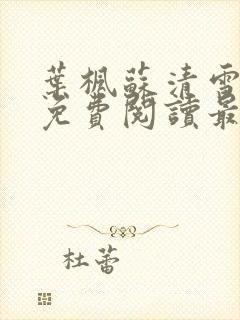 葉楓蘇清雪
免費閱讀最
杜蕾